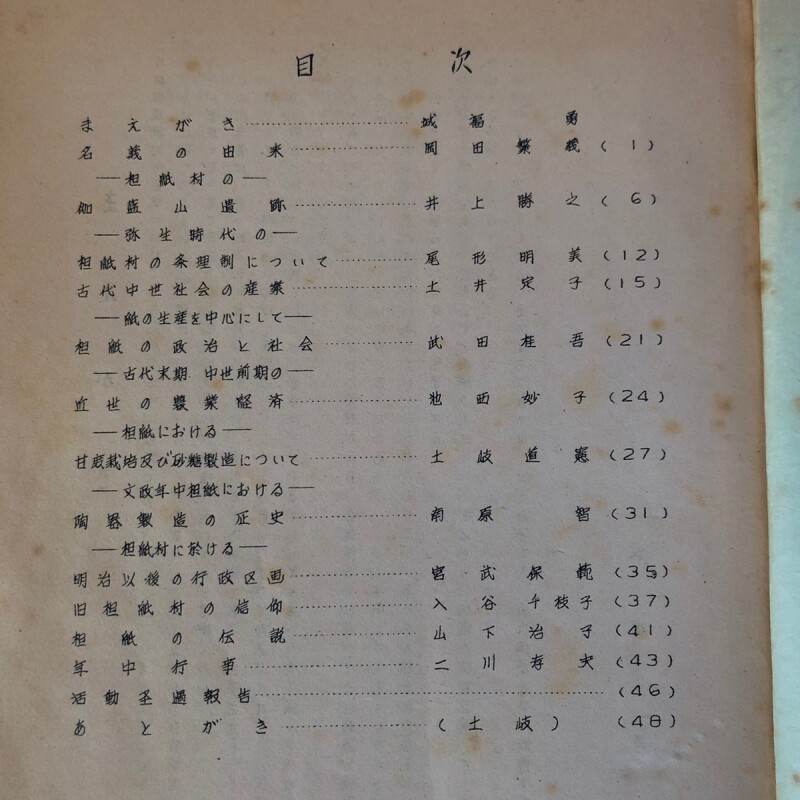 目次
まえがき……………………城福勇
名義の由来……………………岡田繁 (1)
――檀紙村の――
伽藍山遺跡……………………井上勝之 (6)
――弥生時代の――
檀紙村の条理制について……………尾形明美 (12)
古代中世社会の産業……………………土井定子 (15)
――紙の生産を中心にして――
檀紙の政治と社会……………………武田桂吾 (21)
――古代末期 中世前期の――
近世の農業経済……………………池西妙子 (24)
――檀紙における――
甘蔗栽培及び砂糖製造について……………土岐道憲 (27)
――文政年中檀紙における――
陶器製造の歴史……………………南原智 (31)
――檀紙村に於ける――
明治以後の行政区画……………………宮武保範 (35)
旧檀紙村の信仰……………………入谷千枝子 (37)
檀紙の伝説……………………山下治子 (41)
年中行事……………………二川孝夫 (43)
活動経過報告…………………………………… (46)
あとがき……………………(土岐) (48)